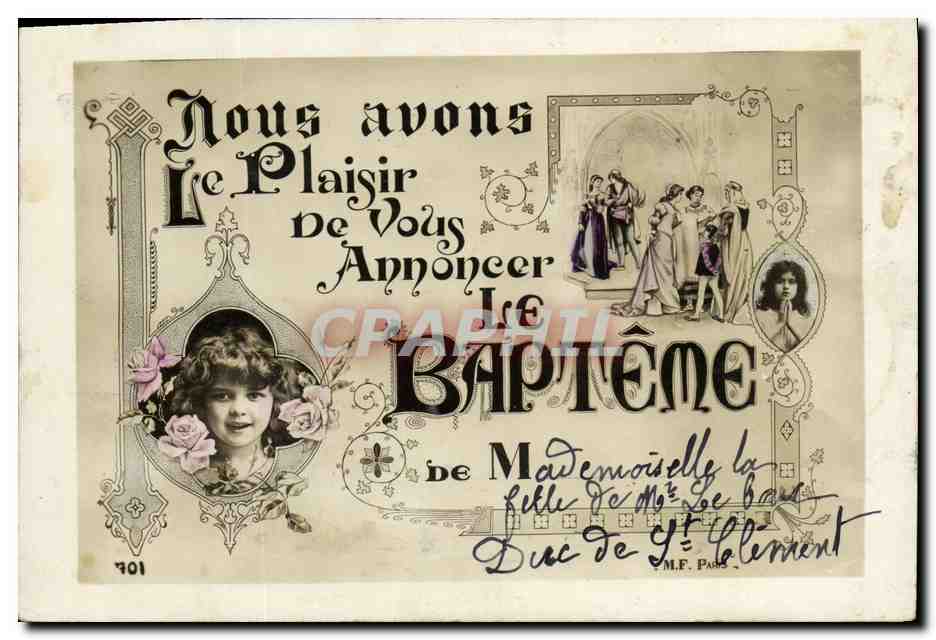 Nous avons
Le Plaisir
De Vous
Annoncer
Le
CPAPHIL
Baptême
de Mademoiselle la
fille de Mr Le
Duc de St Clément
701
M.F. Paris